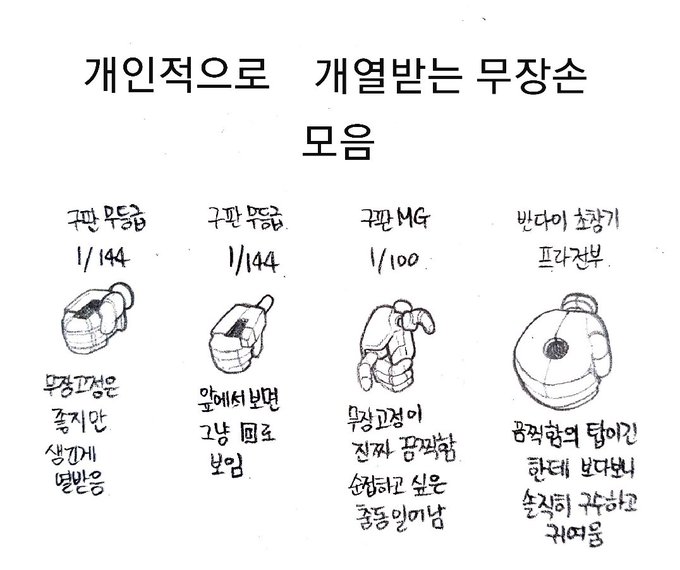 개인적으로 개열받는 무장손
모음
구판 무등급
1/144
무장고정은
좋지만
생긴게
열받음
구판 무등급
1/144
앞에서보면
그냥 回로
보임
구판 MG
1/100
무장고정이
진짜 끔찍함
순접하고 싶은
충동일어남
반다이 초창기
프라전부
끔찍함의 탑이긴
한데 보다보니
솔직히 구수하고
귀여움